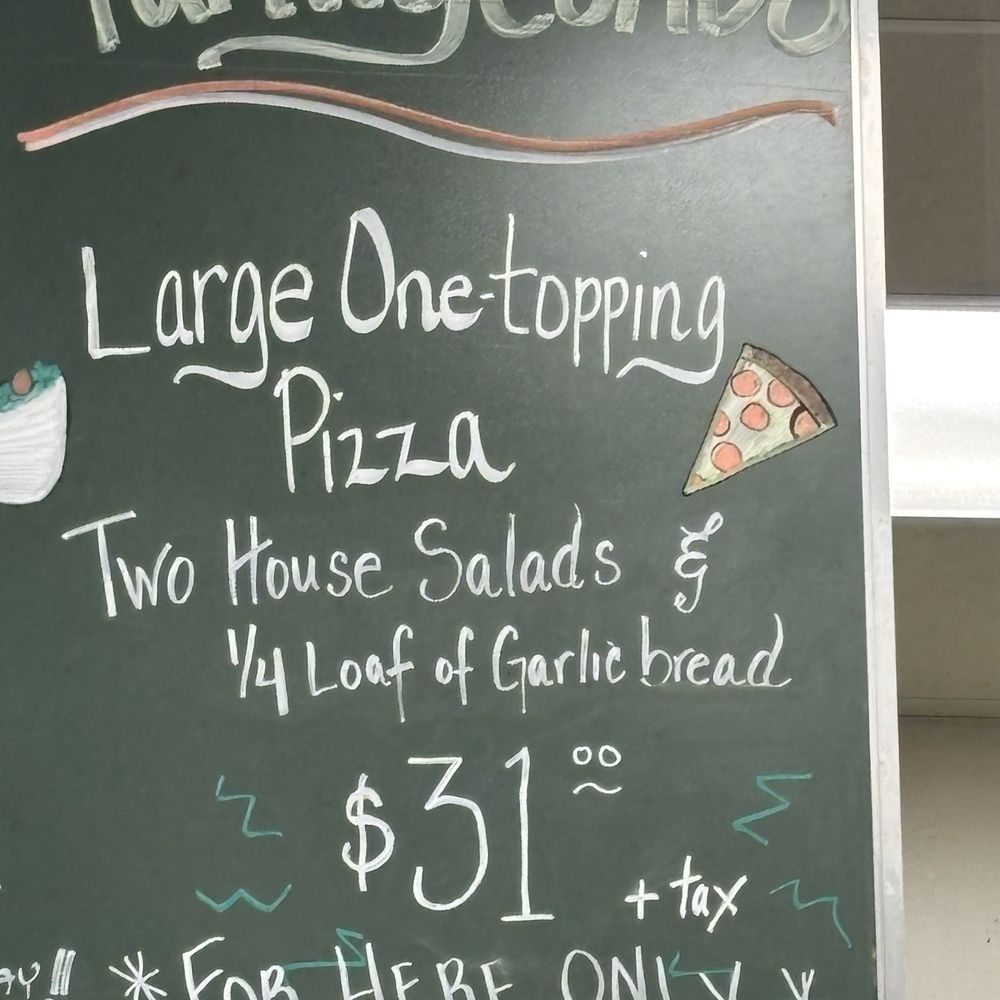 Family Combo
Large One-topping
Pizza
Two House Salads &
1/4 Loaf of Garlic bread
$31.00
+ tax
* FOR HERE ONLY *